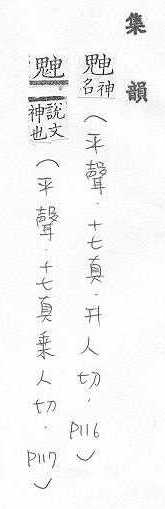 集韻
䰠神名（平聲．十七真．升人切．P116）
䰠說文神也（平聲．十七真乘人切．P117）